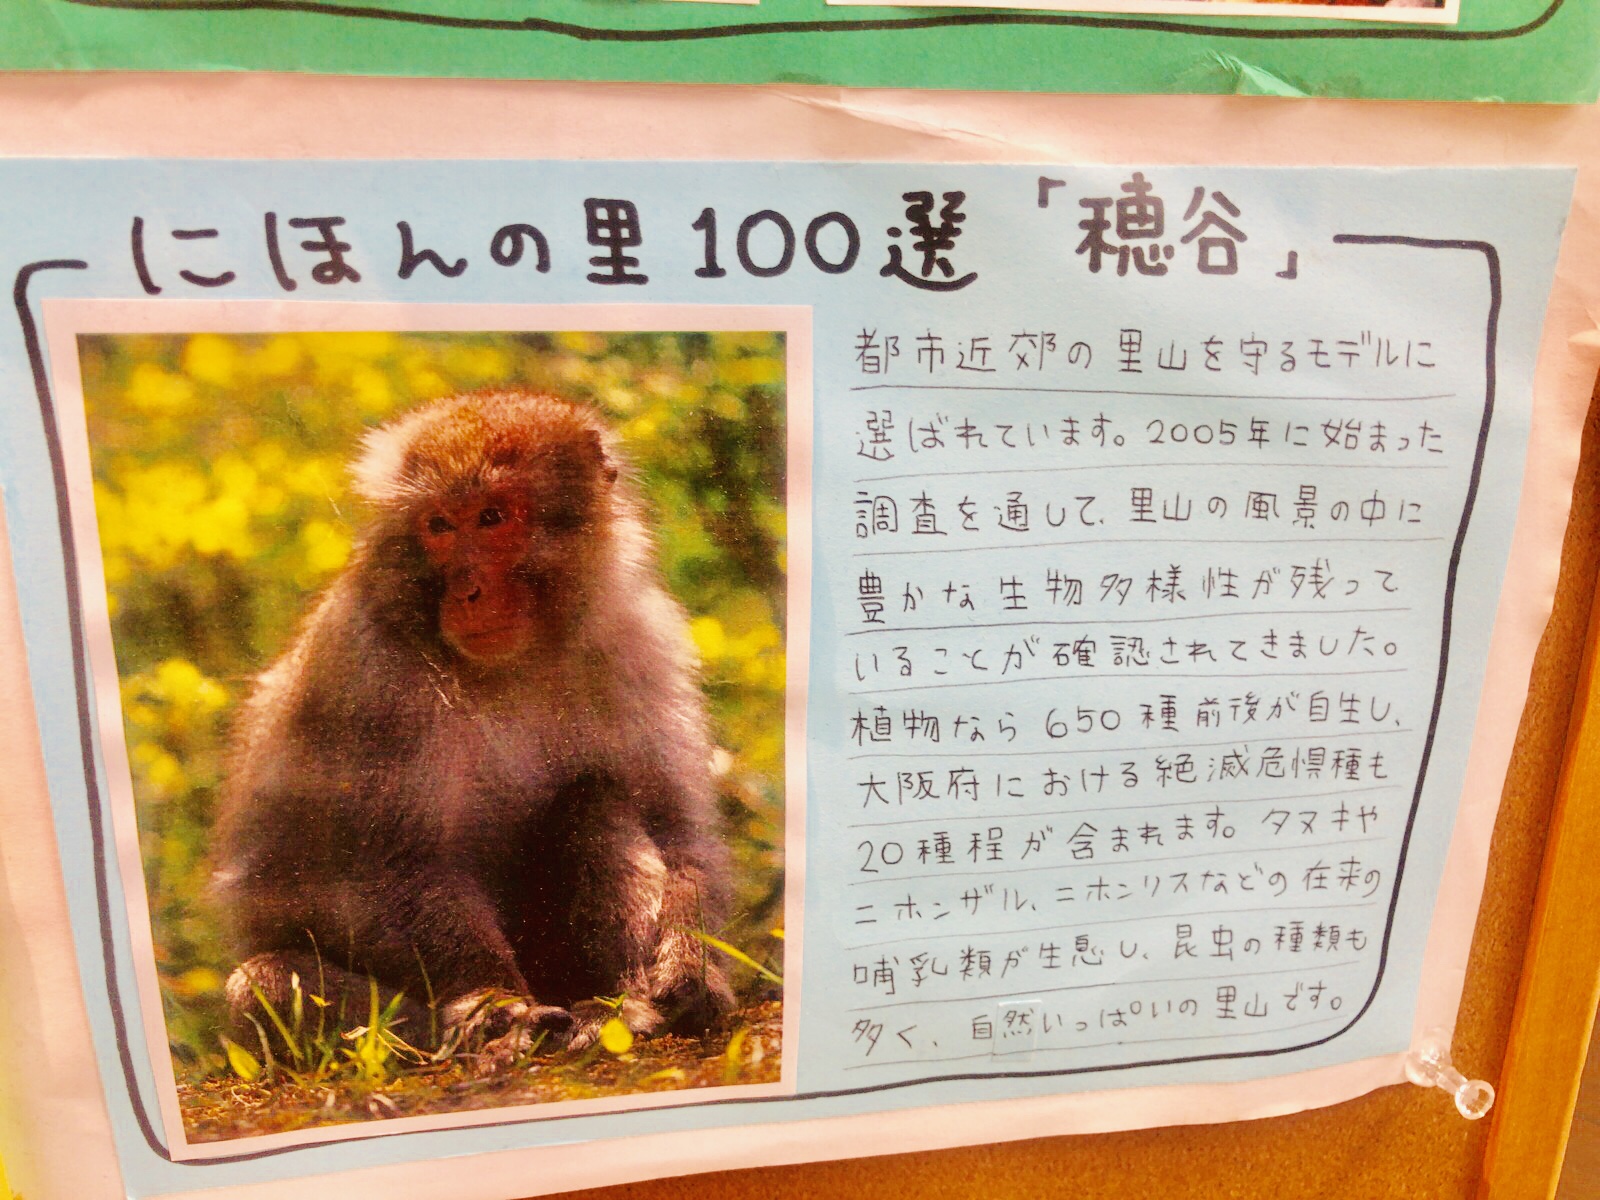 にほんの里100選「穂谷」
都市近郊の里山を守るモデルに
選ばれています。2005年に始まった
調査を通して、里山の風景の中に
豊かな生物多様性が残って
いることが確認されてきました。
植物なら650種前後が自生し、
大阪府における絶滅危惧種も
20種程が含まれます。タヌキや
ニホンザル、ニホンリスなどの在来の
哺乳類が生息し、昆虫の種類も
多く、自然いっぱいの里山です。